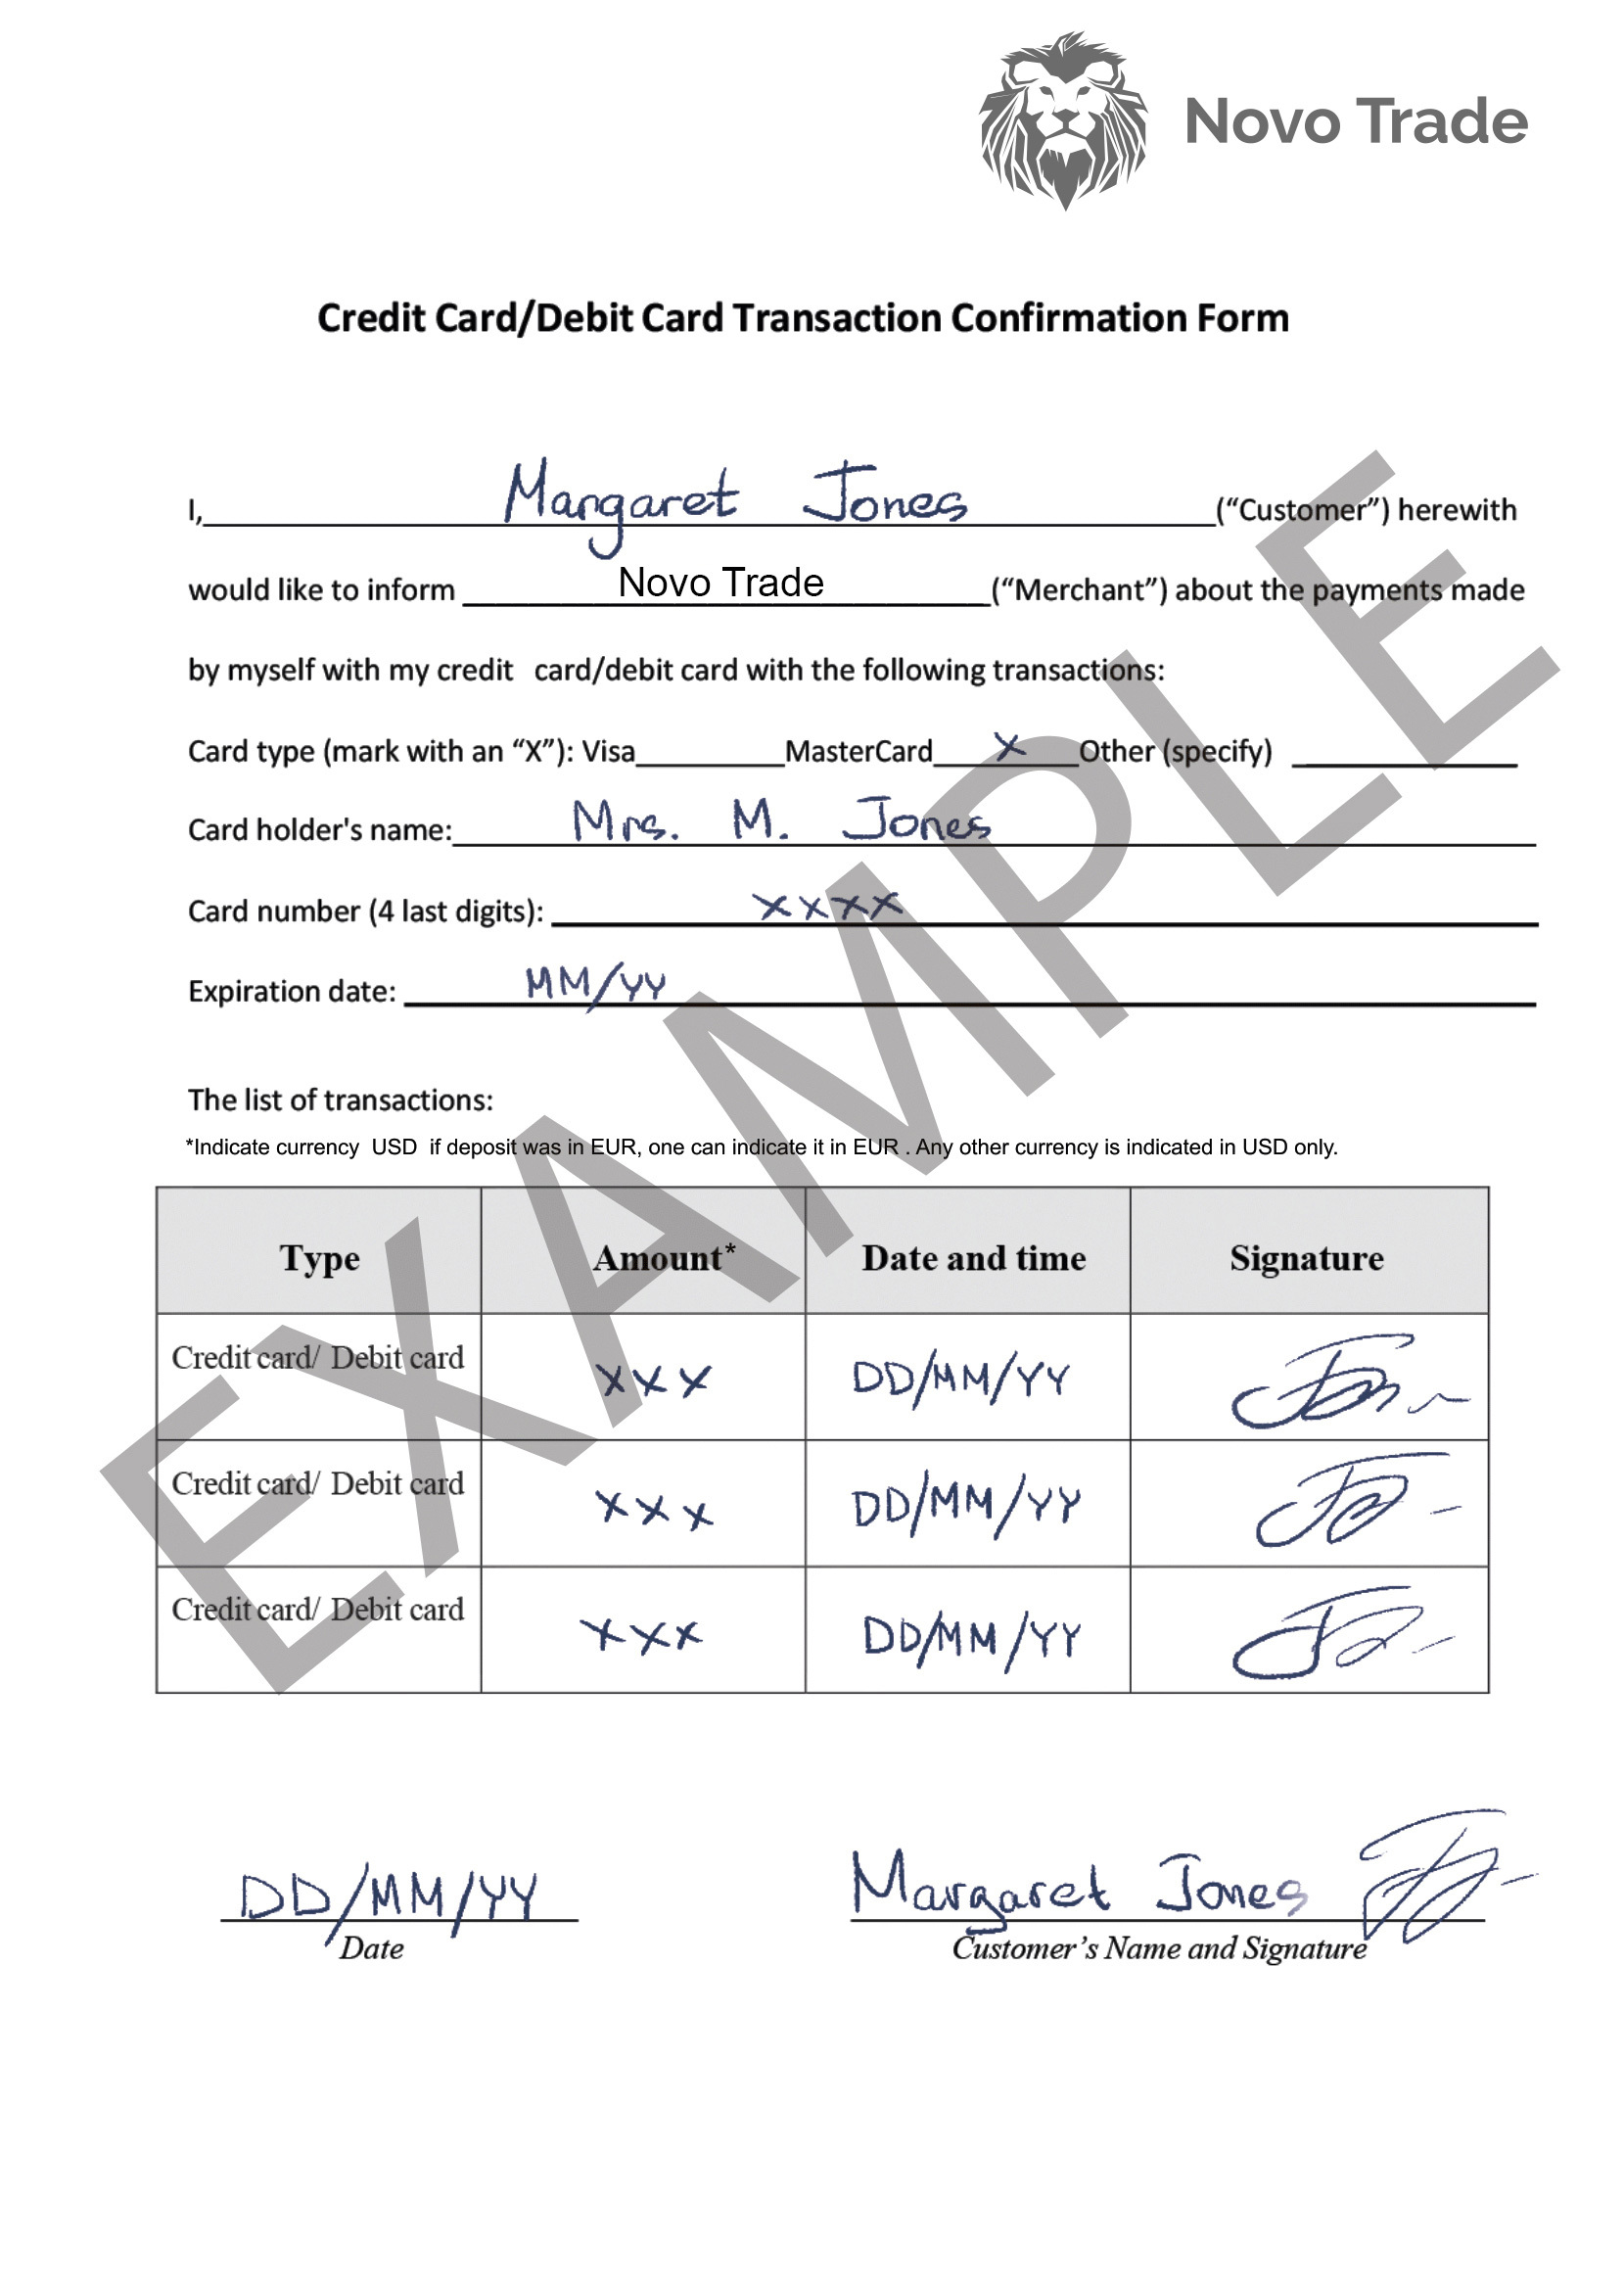 Novo Trade
Credit Card/Debit Card Transaction Confirmation Form
I, Margaret Jones (“Customer”) herewith
would like to inform Novo Trade (“Merchant”) about the payments made
by myself with my credit card/debit card with the following transactions:
Card type (mark with an “X”): Visa MasterCard X Other (specify)
Card holder's name: Mrs. M. Jones
Card number (4 last digits): XXXX
Expiration date: MM/YY
The list of transactions:
*Indicate currency USD if deposit was in EUR, one can indicate it in EUR . Any other currency is indicated in USD only.
Type Amount* Date and time Signature
Credit card/ Debit card XXX DD/MM/YY
Credit card/ Debit card XXX DD/MM/YY
Credit card/ Debit card XXX DD/MM/YY
DD/MM/YY Margaret Jones
Date Customer’s Name and Signature
EXAMPLE